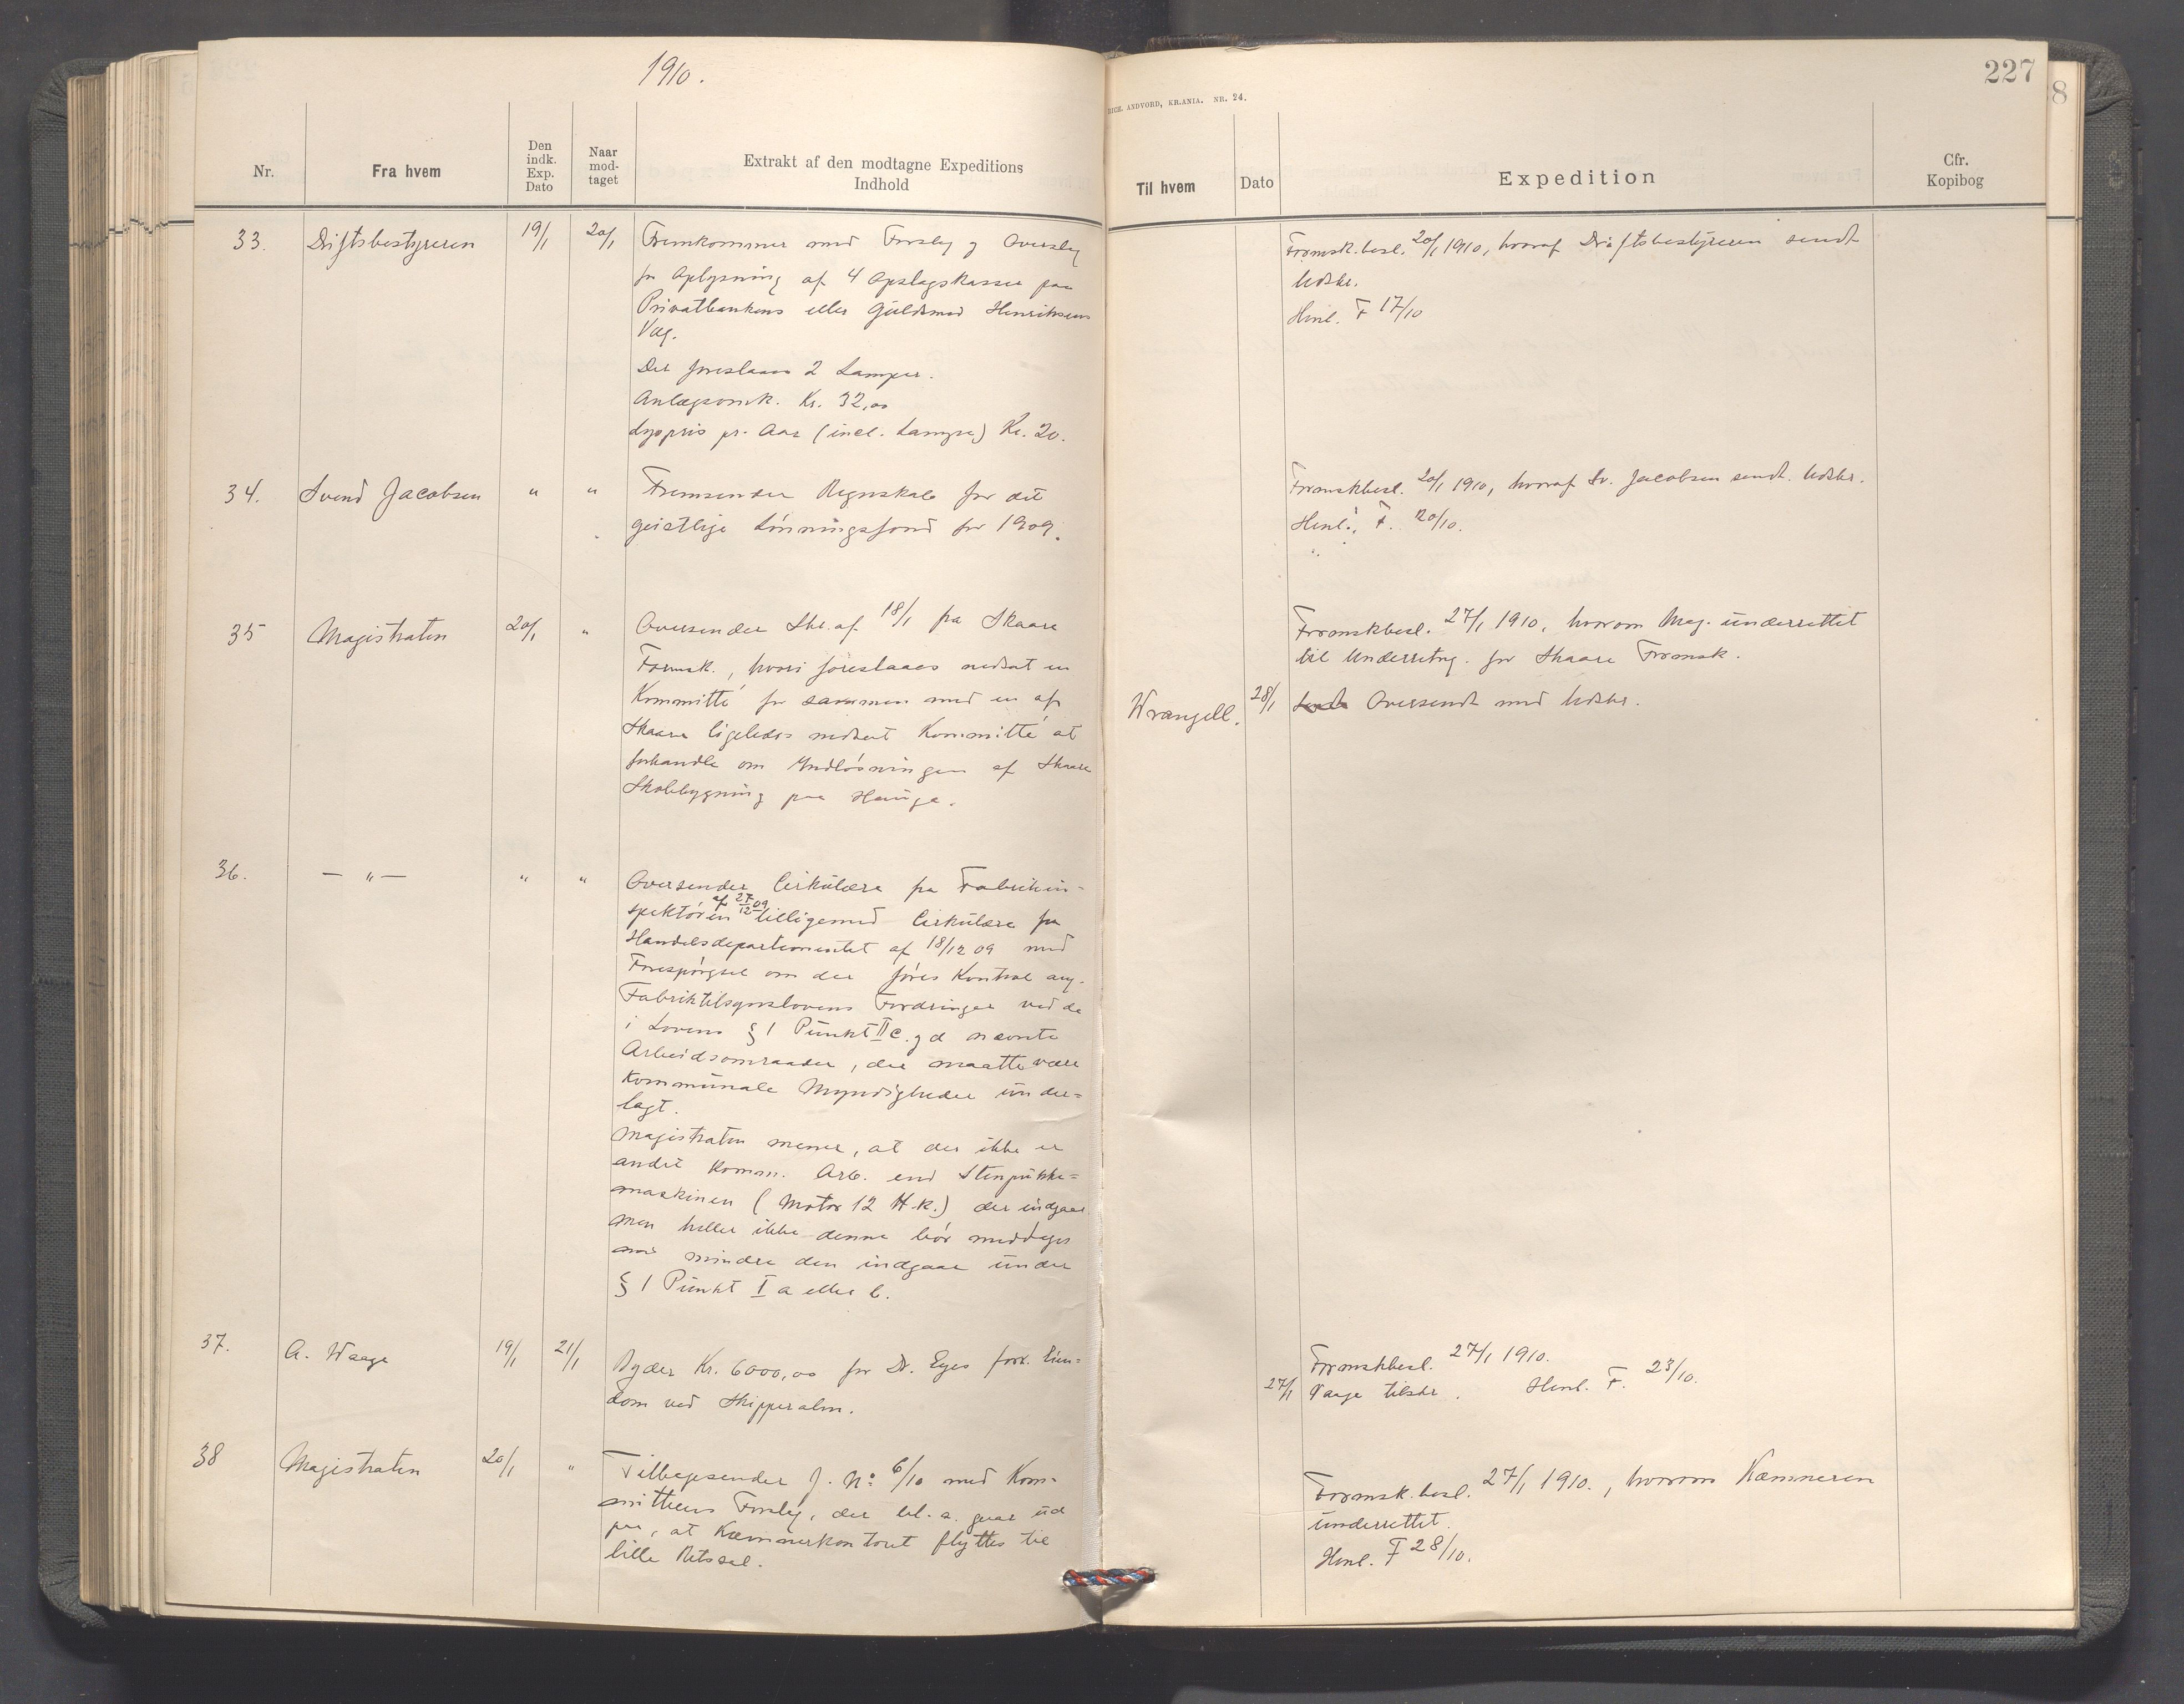 1910.
227
8
RICH. ANDVORD, KR.ANIA. NR. 24.
Nr.
Fra hvem
Den indk. Exp. Dato
Naar mod- taget
Extrakt af den modtagne Expeditions Indhold
Til hvem
Dato
Expedition
Cfr. Kopibog
33. Driftsbestyreren 19/1 20/1 Fremkommer med Forslag og Overslag
for Oplysning af 4 Opslagskasser paa
Privatbankens eller Guldsmed Henriksens
Væg.
Der foreslaaes 2 Lamper.
Anlægsomk. Kr. 32,00
Lyspris pr. Aar (incl. Lamper) Kr. 20.
Formsk.besl. 20/1 1910, hvoraf Driftsbestyreren sendt
Udskr.
Henl. F 17/10
34. Svend Jacobsen " " Fremsender Regnskab for det
geistlige Lønningsfond for 1909.
Formskbesl. 20/1 1910, hvoraf Sv. Jacobsen sendt Udskr.
Henl. F. 20/10.
35 Magistraten 20/1 " Oversender Skr. af 18/1 fra Skaare
Formsk., hvori foreslaaes nedsat en
Kommitté for sammen med en af
Skaare ligeledes nedsat Kommitté at
forhandle om Indløsningen af Skaare
Skolebygning paa Hauge.
Formskbesl. 27/1 1910, hvorom Mag. underrettet
til Underretng. for Skaare Formsk.
Wrangell. 28/1 Sendt Oversendt med Udskr.
36. — " — " " Oversender Cirkulære fra Fabrikin-
spektøren af 27/12 09 tilligemed Cirkulære fra
Handelsdepartementet af 18/12 09 med
Forespørgsel om der føres Kontrol ang.
Fabriktilsynslovens Fordringer ved de
i Lovens § 1 Punkt II c. og d nævnte
Arbeidsomraader, der maatte være
Kommunale Myndigheder under-
lagt.
Magistraten mener, at der ikke er
andet Komm. Arb. end Stenpukke-
maskinen (Motor 12 H.K.) der indgaar
men heller ikke denne bør medtages
med mindre den indgaar under
§ 1 Punkt I a eller b.
37. A. Waage 19/1 21/1 Byder Kr. 6000,00 for Dr. Eyes forr. Eien-
dom ved Skipperalm.
Formskbesl. 27/1 1910.
27/1 Vaage tilskr. Henl. F. 23/10.
38 Magistraten 20/1 " Tilbagesender J. No: 6/10 med Kom-
mitteens Forslag, der bl. a. gaar ud
paa, at Kæmnerkontoret flyttes til
lille Retssal.
Formsk.besl. 27/1 1910., hvorom Kæmneren
underrettet.
Henl. F 28/10.